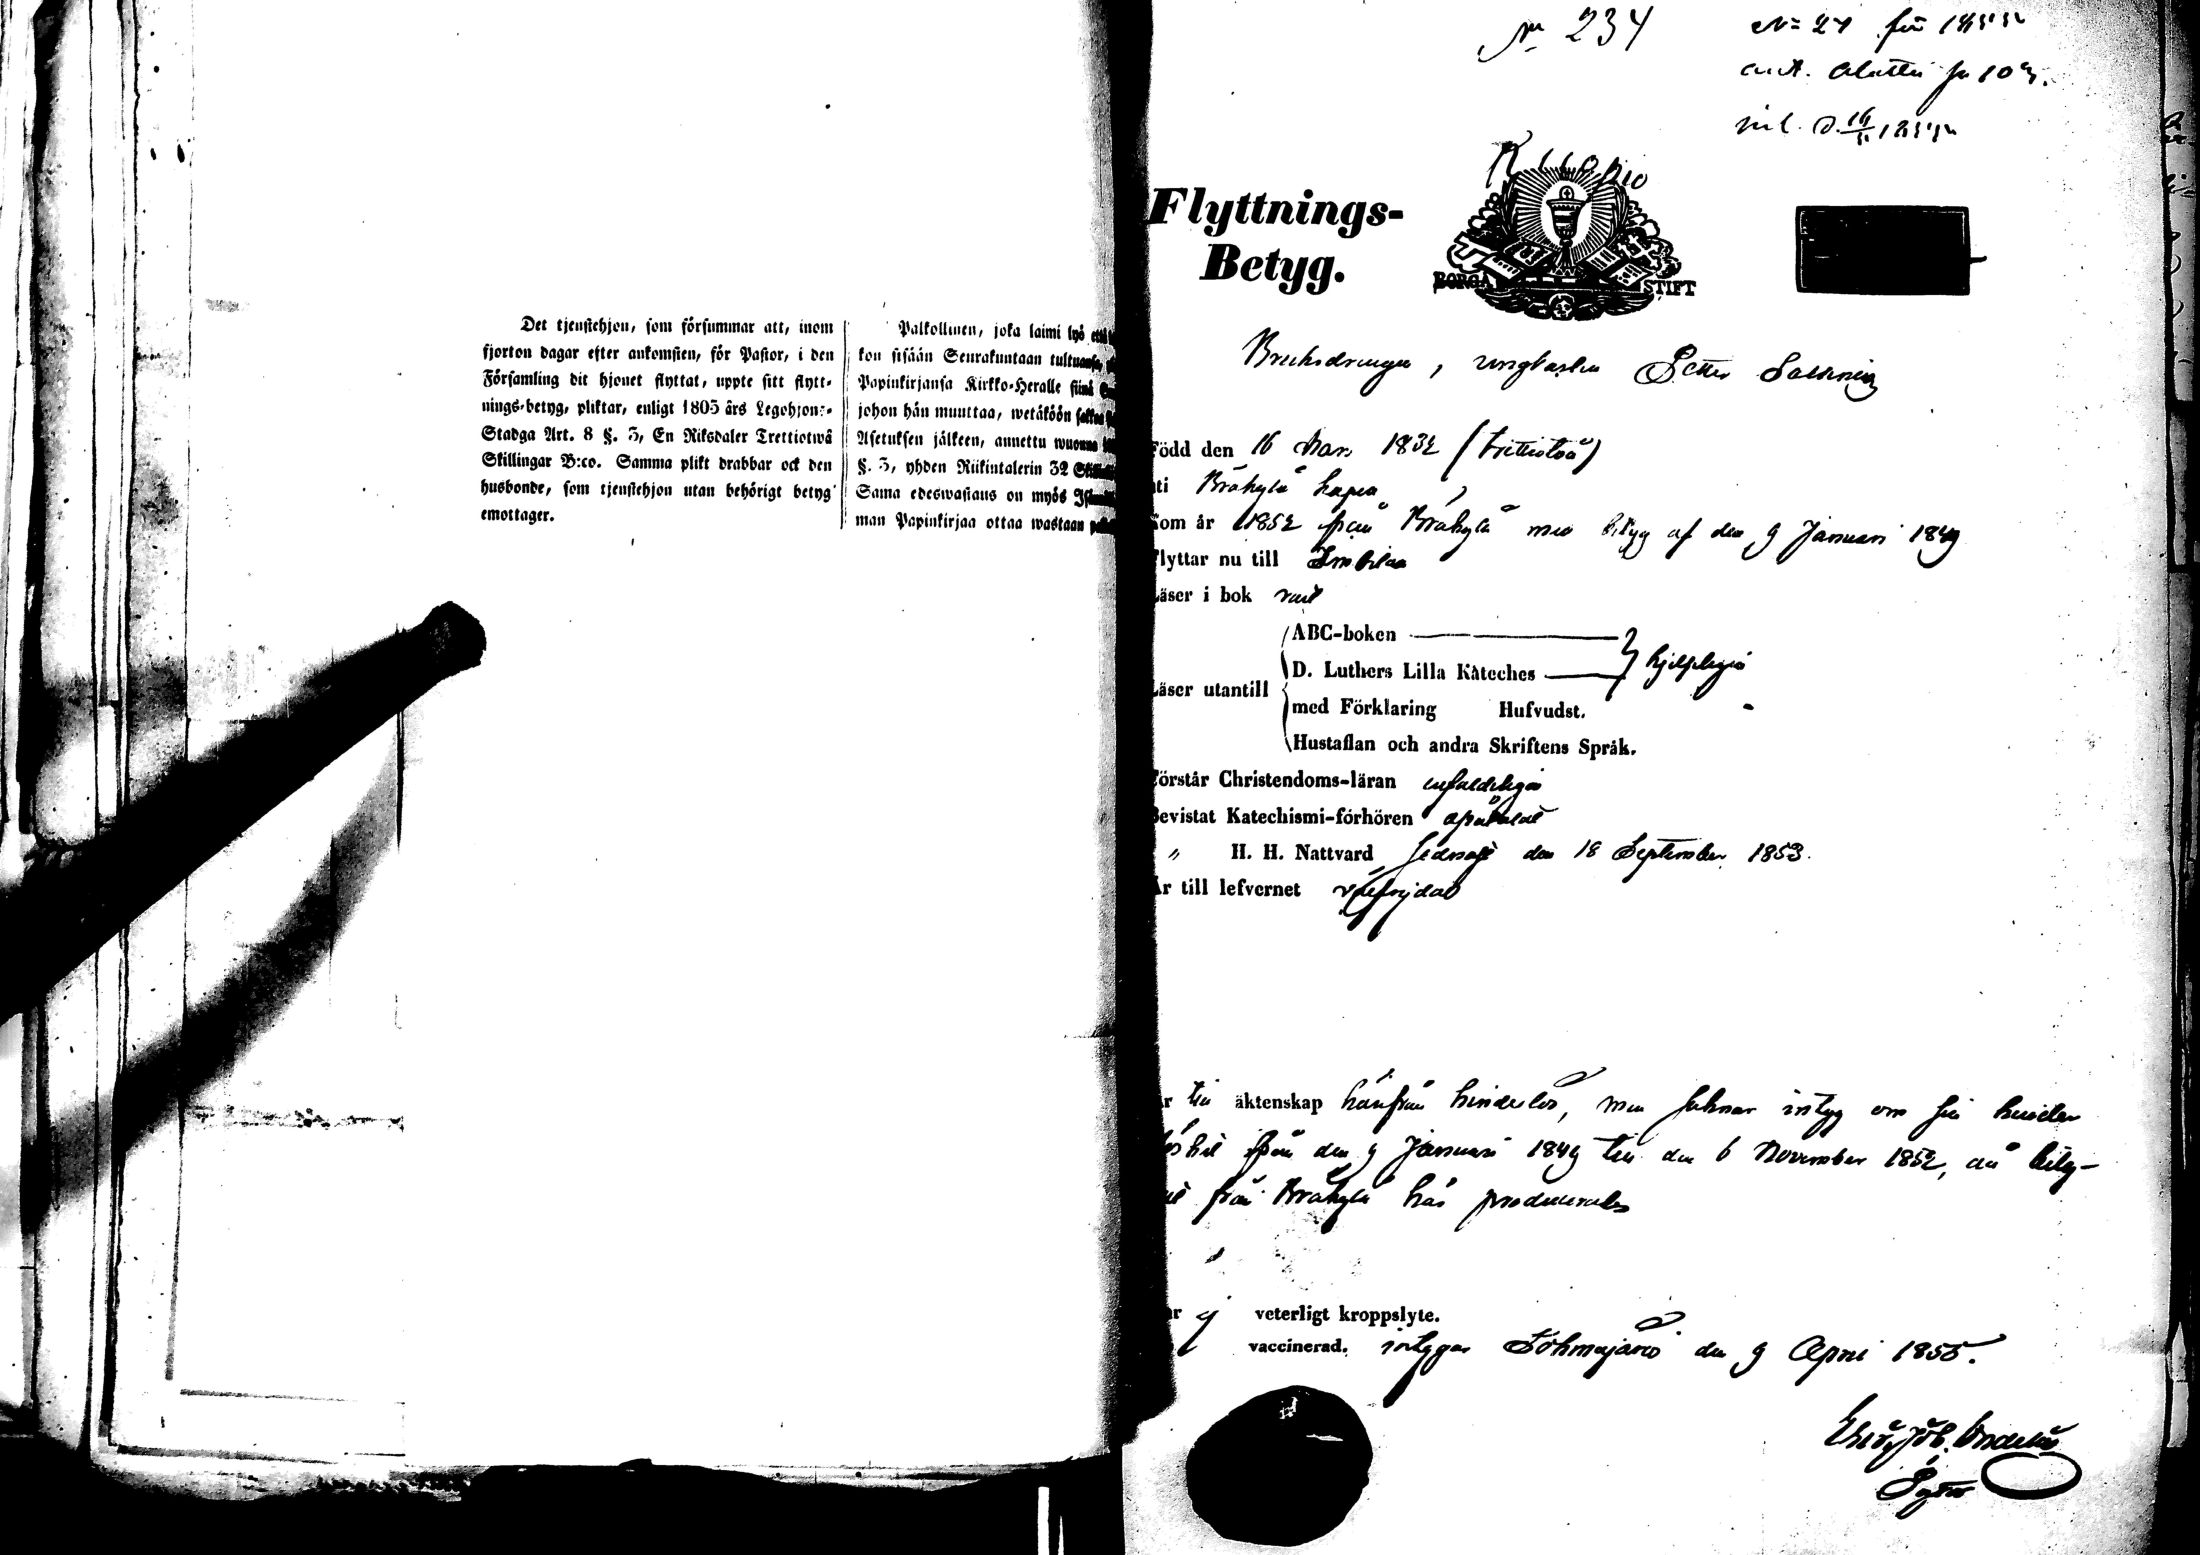 Det tjenstehjon, som försummar att, inom
fjorton dagar efter ankomsten, för Pastor, i den
Församling dit hjonet flyttat, uppte sitt flytt-
nings-betyg, pliktar, enligt 1805 års Legohjons-
Stadga Art. 8 §. 3, En Riksdaler Trettiotwå
Skillingar B:co. Samma plikt drabbar ock den
husbonde, som tjenstehjon utan behörigt betyg
emottager.
Palkollinen, joka laimi lyö
kon sisään Seurakuntaan tultuansa,
Papinkirjansa Kirkko-Heralle siinä
johon hän muuttaa, wetäköön sakkoa
Asetuksen jälkeen, annettu wuonna
§. 3, yhden Riikintalerin 32
Sama edeswastaus on myös
man Papinkirjaa ottaa wastaan
No 234
No 27 för 1855
int. D. 16/11 1855
Kuopio
Flyttnings-
Betyg.
BORGÅ STIFT
Bruksdrengen, ungkarlen Petter
Född den 16 Mars 1832 (trettiotvå)
uti Bråkylä kapell
Kom år 1852 från Bråkylä med betyg af den 9 Januari 1849
Flyttar nu till Imbilax
Läser i bok
ABC-boken
D. Luthers Lilla Kateches hjelpligen
Läser utantill
med Förklaring Hufvudst.
Hustaflan och andra Skriftens Språk.
Förstår Christendoms-läran enfaldeligen
Bevistat Katechismi-förhören
" H. H. Nattvard sednast den 18 September 1853.
Är till lefvernet välfrejdad
Är till äktenskap härifrån hinderlös, men saknar intyg om sin hinder
löshet från den 9 Januari 1849 till den 6 November 1852, då bety-
get från Bråkylä här producerades
Har ej veterligt kroppslyte.
vaccinerad. intygar Tohmajärvi den 9 April 1855.